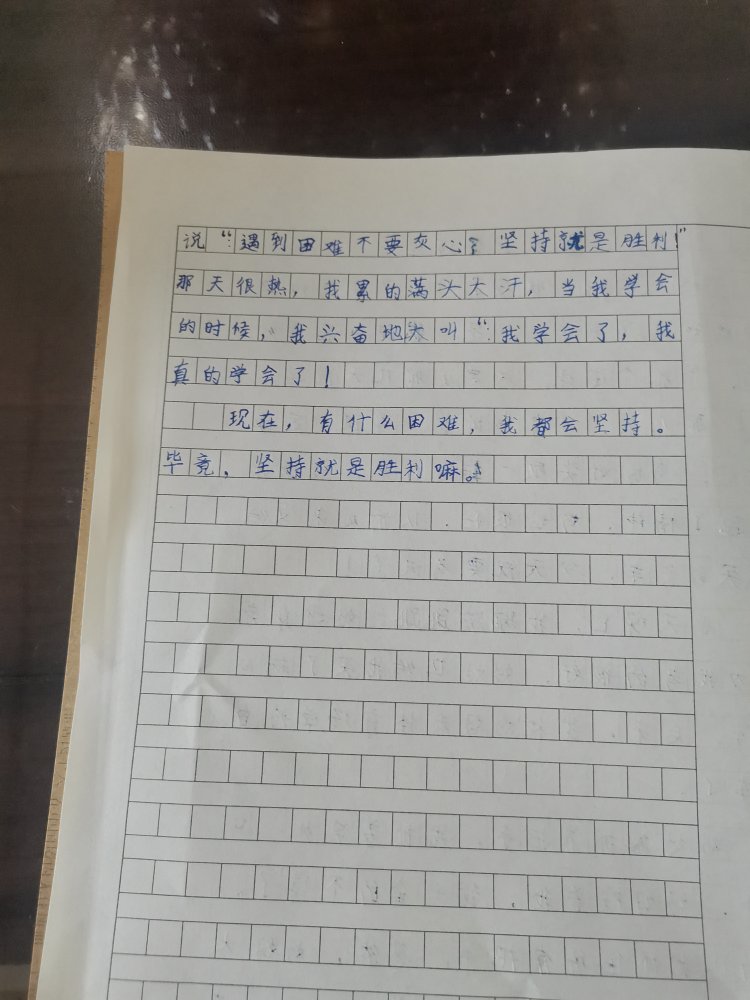 说“:遇到困难不要灰心,坚持就是胜利!”
那天很热,我累的满头大汗,当我学会
的时候,我兴奋地大叫“:我学会了,我
真的学会了!
现在,有什么困难,我都会坚持。
毕竟,坚持就是胜利嘛。